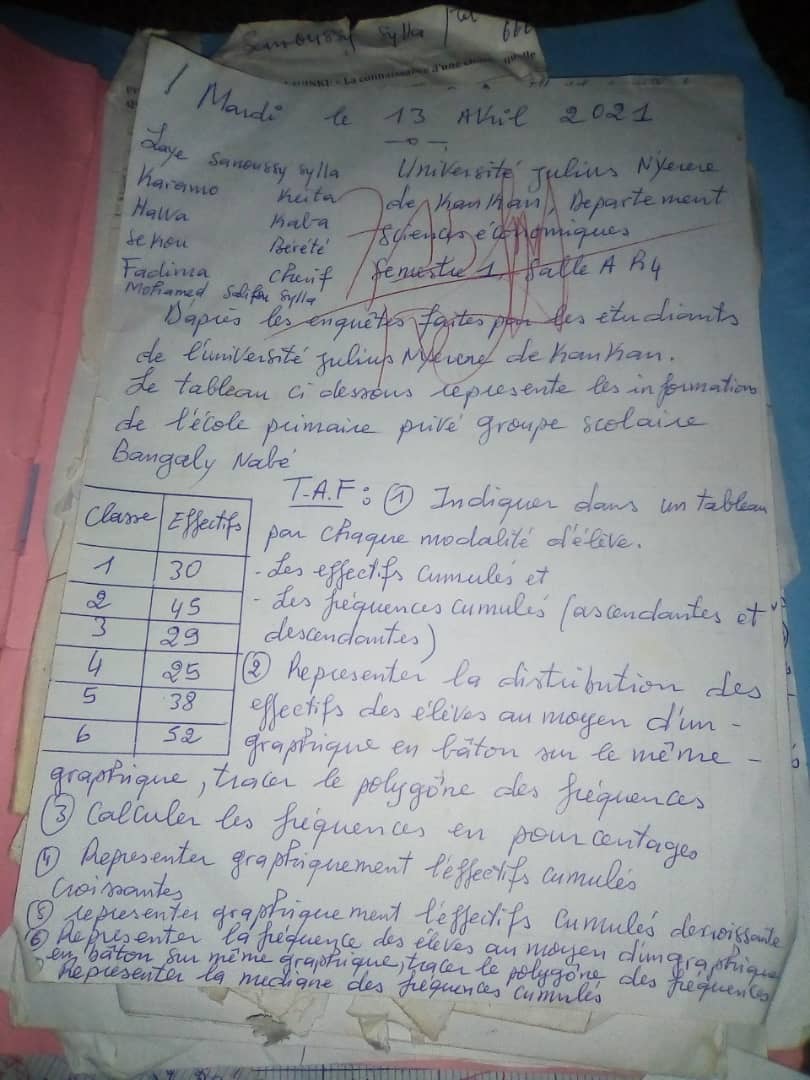 Sanoussy Sylla
La connaissance d'une
Mardi le 13 Avril 2021
Laye Sanoussy Sylla
Karamo Keita
Hawa Kaba
Sekou Bérété
Fadima Cherif
Mohamed Salifou Sylla
Université Julius Nyerere
de KanKan, Departement
Sciences économiques
Semestre 1, Salle A R4
D'après les enquêtes faites par les étudiants
de l'université Julius Nyerere de KanKan.
Le tableau ci dessous represente les informations
de l'école primaire privé groupe scolaire
Bangaly Nabé
Classe Effectifs
1 30
2 45
3 29
4 25
5 38
6 52
T.A.F : ① Indiquer dans un tableau
par chaque modalité d'élève.
- Les effectifs cumulés et
- Les fréquences cumulés (ascendantes et
descendantes)
② Representer la distribution des
effectifs des élèves au moyen d'un -
graphique en bâton sur le même -
graphique, tracer le polygône des fréquences
③ Calculer les fréquences en pourcentages
④ Representer graphiquement l'effectifs cumulés
croissantes
⑤ representer graphiquement l'effectifs cumulés decroissante
⑥ Representer la fréquence des élèves au moyen d'un graphique
en bâton sur même graphique, tracer le polygône des fréquences
Representer la mediane des fréquences cumulés